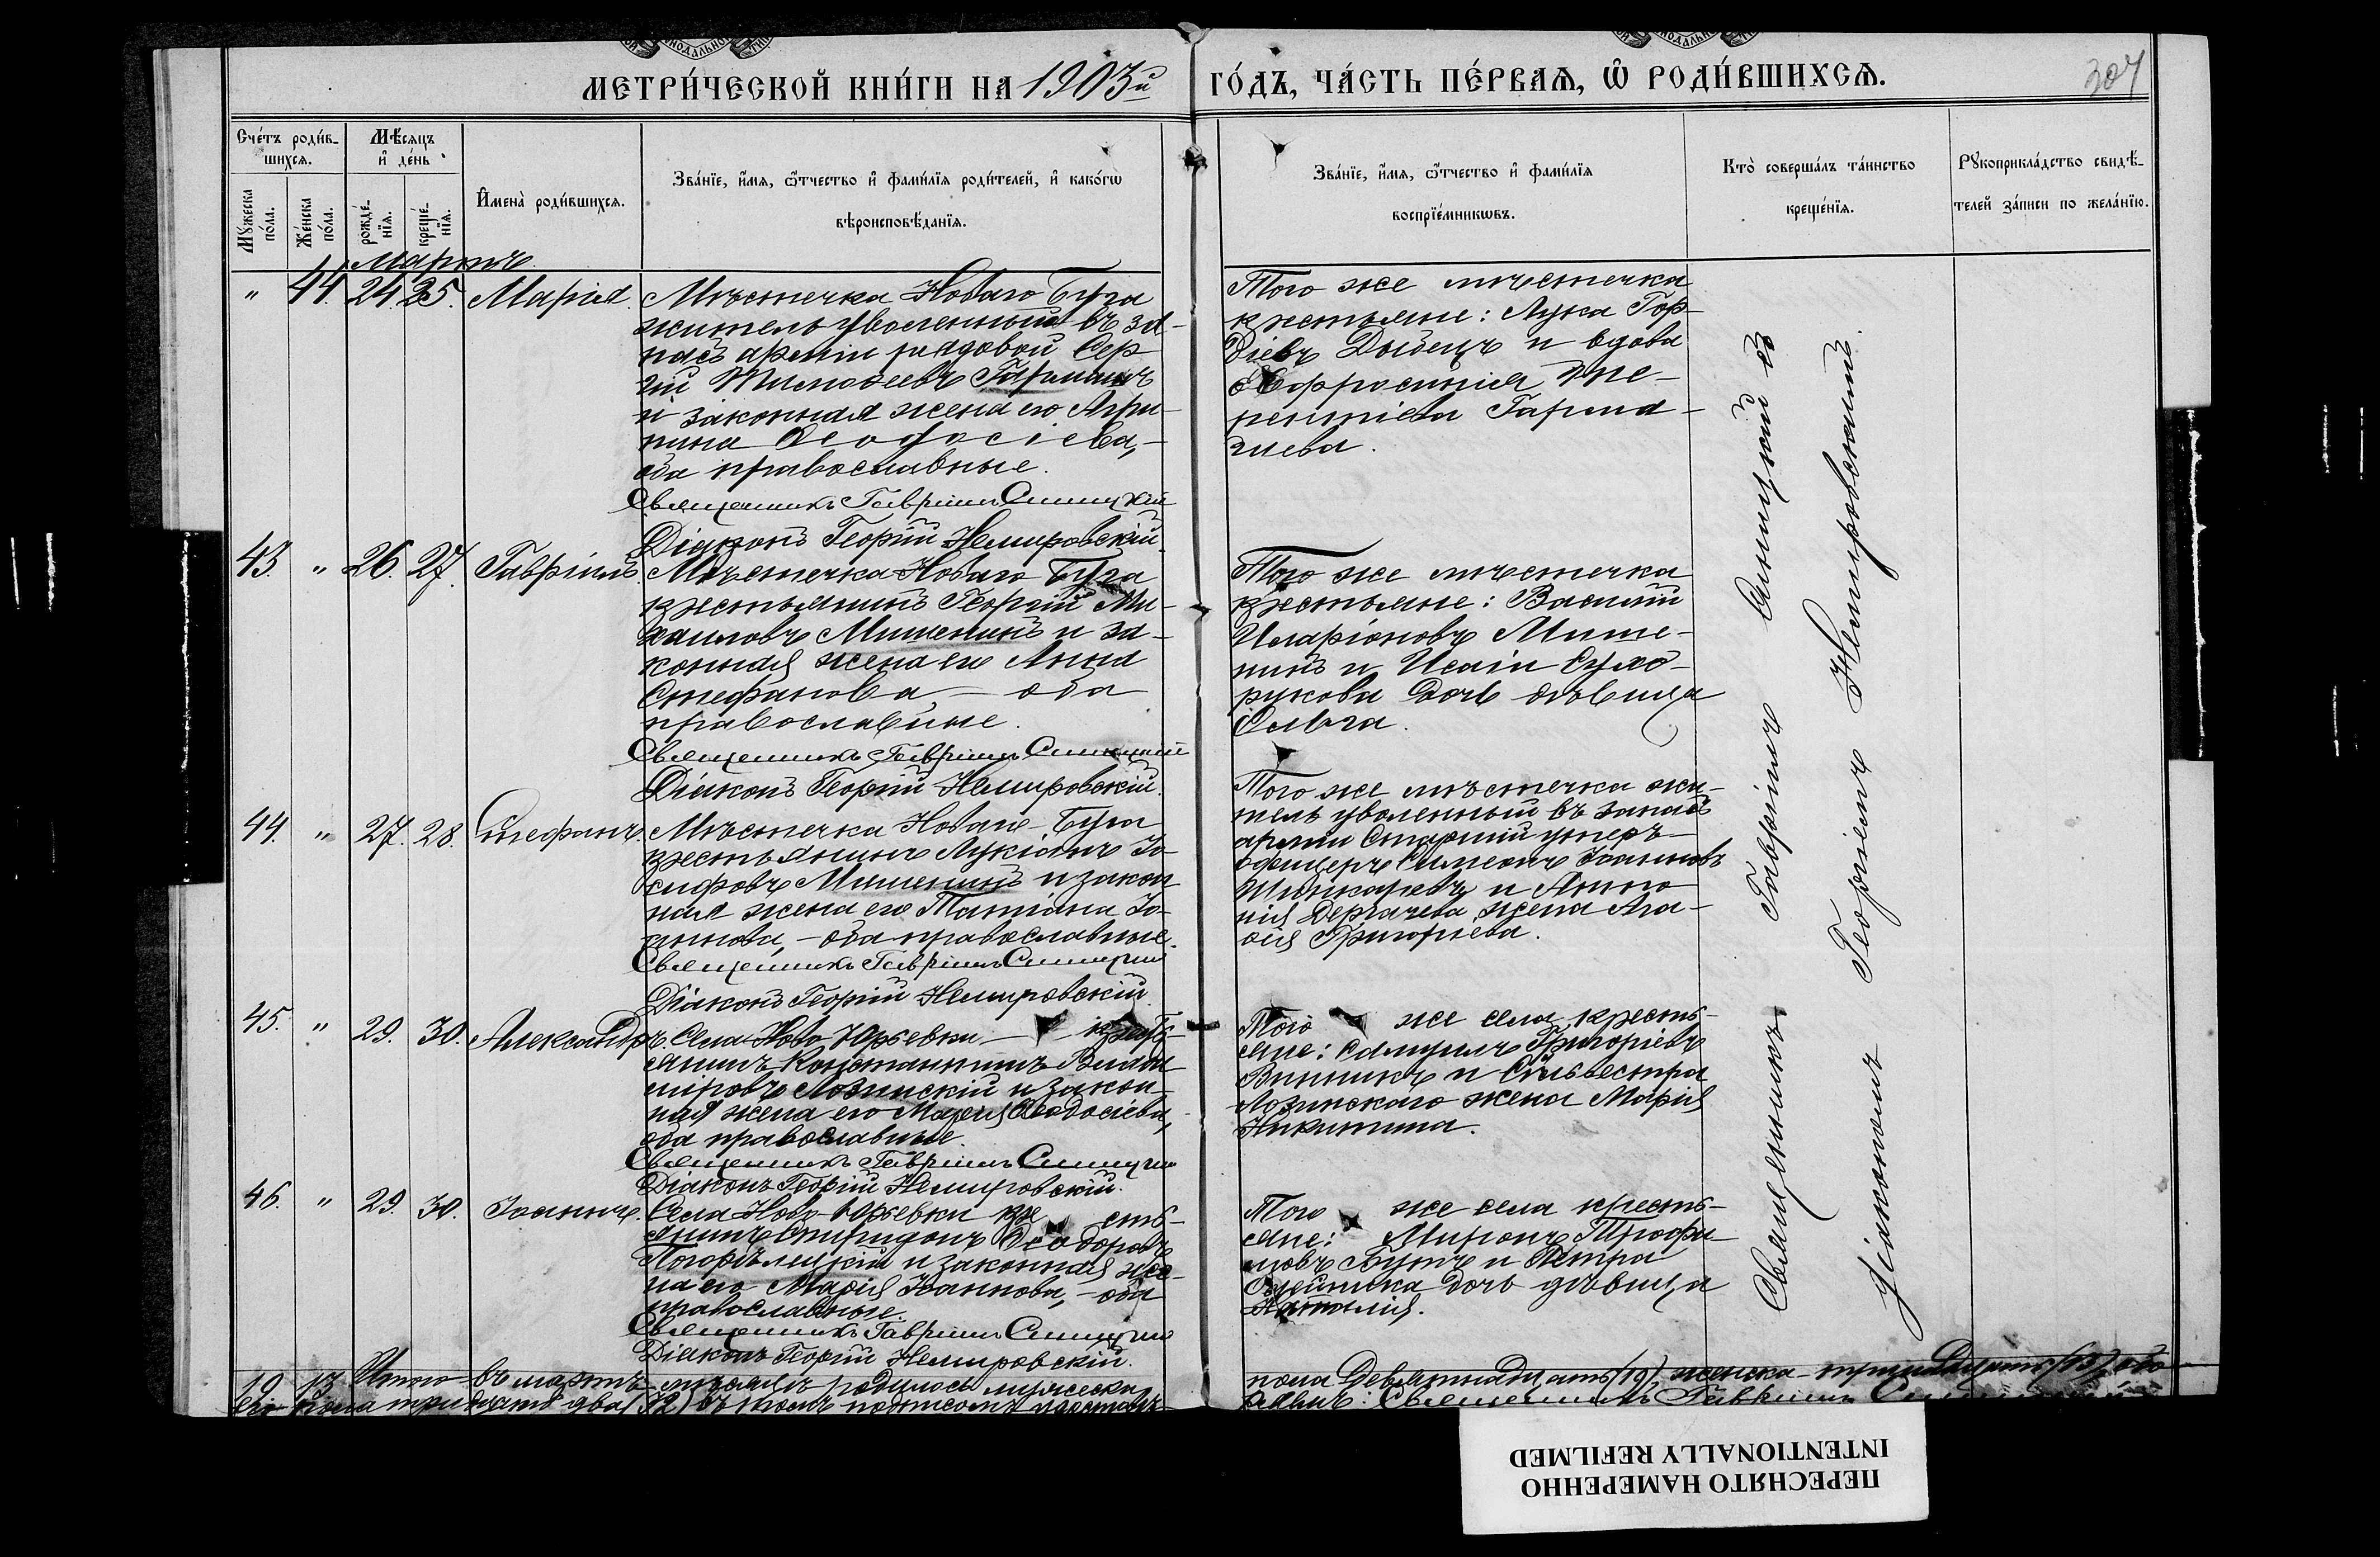 МЕТРИ́ЧЕСКОЙ КНИ́ГИ НА 1903й ГО́ДЪ, ЧА́СТЬ ПЕ́РВАЯ, Ѡ РОДИ́ВШИХСѦ.
307
Сче́тъ роди́в-
шихсѧ.
Мѣ́сѧцъ
и҆ де́нь
Мꙋ́жеска
по́ла.
Же́нска
по́ла.
рожде́-
нїѧ.
креще́-
нїѧ.
И҆мена̀ роди́вшихсѧ.
Зва́нїе, и҆́мѧ, ѻ҆́тчество и҆ фами́лїѧ роди́телей, и҆ како́гѡ
вѣроисповѣ́данїѧ.
Зва́нїе, и҆́мѧ, ѻ҆́тчество и҆ фами́лїѧ
воспрїе́мникѡвъ.
Кто̀ соверша́лъ та́инство
креще́нїѧ.
Рꙋкоприкла́дство свидѣ́-
телей за́писи по жела́нїю.
Мартъ
" 44. 24. 25. Марія.
Мѣстечка Новаго Буга
житель уволенный въ за-
пасъ арміи рядовой Сер-
гій Тимоѳеевъ
и законная жена его Агри-
пина Ѳеодосіева,-
оба православные.
Священникъ Гавріилъ Синицкій
Діаконъ Георгій Немировскій.
Того же мѣстечка
крестьяне: Лука Гор-
діевъ и вдова
Евфросинія
43. " 26. 27. Гавріилъ.
Мѣстечка Новаго Буга
крестьянинъ Георгій Ми-
хаиловъ Мишенинъ и за-
конная жена его Анна
Стефанова - оба
православные.
Священникъ Гавріилъ Синицкій
Діаконъ Георгій Немировскій.
Того же мѣстечка
крестьяне: Василій
Иларіоновъ Мише-
нинъ и Исаіи Сухо-
рукова дочь дѣвица
Ольга.
44. " 27. 28. Стефанъ.
Мѣстечка Новаго Буга
крестьянинъ Лукіанъ Іо-
сифовъ Мишенинъ и закон
ная жена его Татіана Іо-
аннова,- оба православные.
Священникъ Гавріилъ Синицкій
Діаконъ Георгій Немировскій.
Того же мѣстечка жи-
тель уволенный въ запасъ
арміи Старшій унтеръ-
офицеръ Симеонъ Іоанновъ
Шинкаревъ и Анто-
нія Дергачева жена Ага-
ѳія Григорьева.
45. " 29. 30. Александръ.
Села Ново-Юрьевки - кресть-
янинъ Константинъ Влади-
міровъ Лозинскій и закон-
ная жена его Марія Ѳеодосіева,
оба православные.
Священникъ Гавріилъ Синицкій
Діаконъ Георгій Немировскій.
Того же села кресть-
яне: Самуилъ Григоріевъ
Винникъ и Сильвестра
Лозинскаго жена Марія
Никитина.
46. " 29. 30. Іоаннъ.
Села Ново-Юрьевки кресть-
янинъ Спиридонъ Ѳеодоровъ
Погорѣлецкій и законная же-
на его Марія Іоаннова,- оба
православные.
Священникъ Гавріилъ Синицкій
Діаконъ Георгій Немировскій.
Того же села кресть-
яне: Миронъ Трофи-
мовъ и Петра
дочь дѣвица
Наталія.
Священникъ Гавріилъ Синицкій съ
діакономъ Георгіемъ Немировскимъ.
19 13 Итого въ мартѣ мѣсяцѣ родилось мужеска
пола девятнадцать (19), женска - тринадцать (13), обо-
его пола тридцать два (32)
Священникъ Гавріилъ
ПЕРЕСНЯТО НАМЕРЕННО
INTENTIONALLY REFILMED